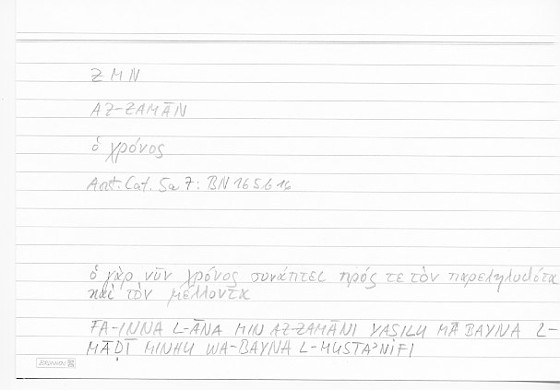 ZMN
AZ-ZAMĀN
ὁ χρόνος
Arist. Cat. 5a 7: BN 165b16
ὁ γὰρ νῦν χρόνος συνάπτει πρός τε τὸν παρεληλυθότα
καὶ τὸν μέλλοντα
FA-INNA L-ĀNA MIN AZ-ZAMĀNI YAṢILU MĀ BAYNA L-
MĀḌĪ MINHU WA-BAYNA L-MUSTAʾNIFI